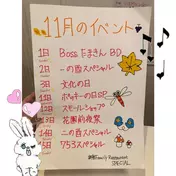 11月のイベント
1日 Boss たまきん BD
2日 一の酉スペシャル
3日 文化の日
11日 ポッキーの日SP
12日 スモールショップ
13日 花園前夜祭
14日 二の酉スペシャル
15日 753スペシャル
SPECIAL